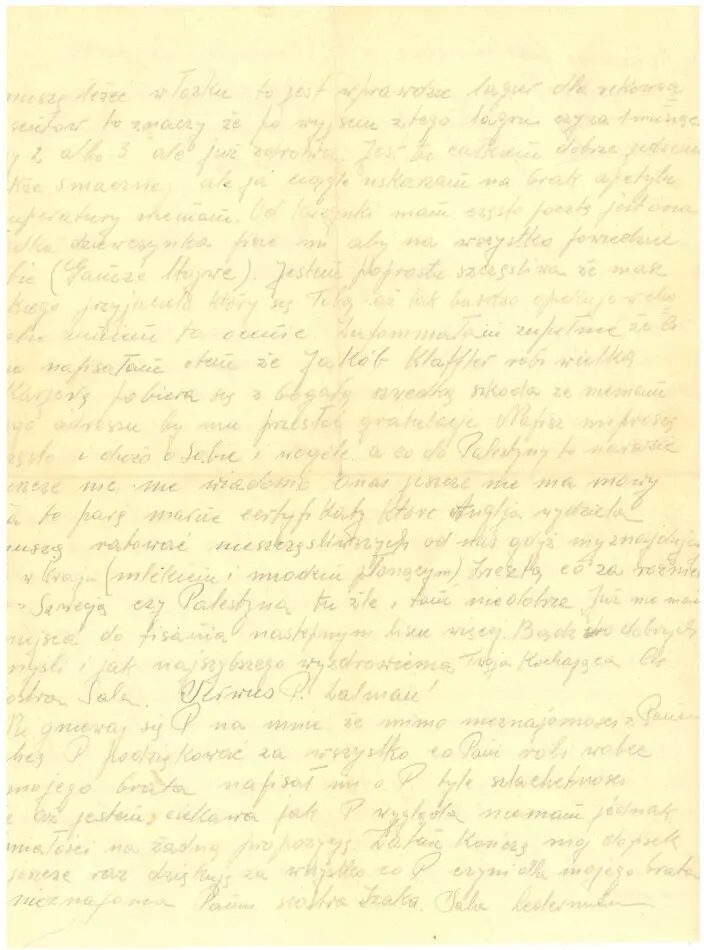 muszę leżec w łożku to jest wprawdzie lagier dla rekowa
to znaczy że po wyjsciu z tego lagru czy za 1 miesiąc
y 2 albo 3 ale już zdrowa. Jest tu całkiem dobrze jedzenie
kże smaczne, ale ja ciągle uskarzam na brak apetytu
mperatury niemam. Od Kregunki mam często pocztę jest ona
dka dziewczynka pisze mi aby na wszystko powiedziec
bie (Gancze Majwe). Jestem poprostu szczęsliwa że masz
kiego przyjaciela który się Tobą aż tak bardzo opiekuje w cho
umiem to ocenic Zapomniałam zupełnie że Ci
ie napisałam otem że Jakób Klaffter robi wielką
Karjerę pobiera się z bogatą szwedką szkoda że niemam
go adressu by mu przesłać gratulacje. Napisz mi proszę
zęsto i dużo o Sobie i wogóle. a co do Palestyny to narazie
eszcze nic nie wiadomo Unas jeszcze nie ma mowy
a te parę marne certyfikaty ktore Anglja wydziela
muszą ratować nieszczęsliwszych od nas gdyż my znajdujem
w Kraju (mlekiem i miodem płonącym) Zresztą co za roznica
Szwecja czy Palestyna tu źle i tam niedobrze. Już nie mam
miejsca do pisania następnym liscie więcej. Bądz dobrych
mysli i jak najszybszego wyzdrowienia Twoja Kochająca Cię
ostra Sala. Serwus P. Zalman!
Nie gniewaj się P na mnie że mimo nieznajomosci z Panem
chcę P podziękować za wszystko co Pan robi wobec
mojego brata napisał mi o P tyle szlachetnosci
e aż jestem ciekawa jak P wygląda niemam jednak
miałosci na żadną propozycję Zatem Konczę moj dopisek
jeszcze raz dziękuję za wszystko co P czyni dla mojego brata
nieznajoma Panu siostra Izaka. Sala Lederman